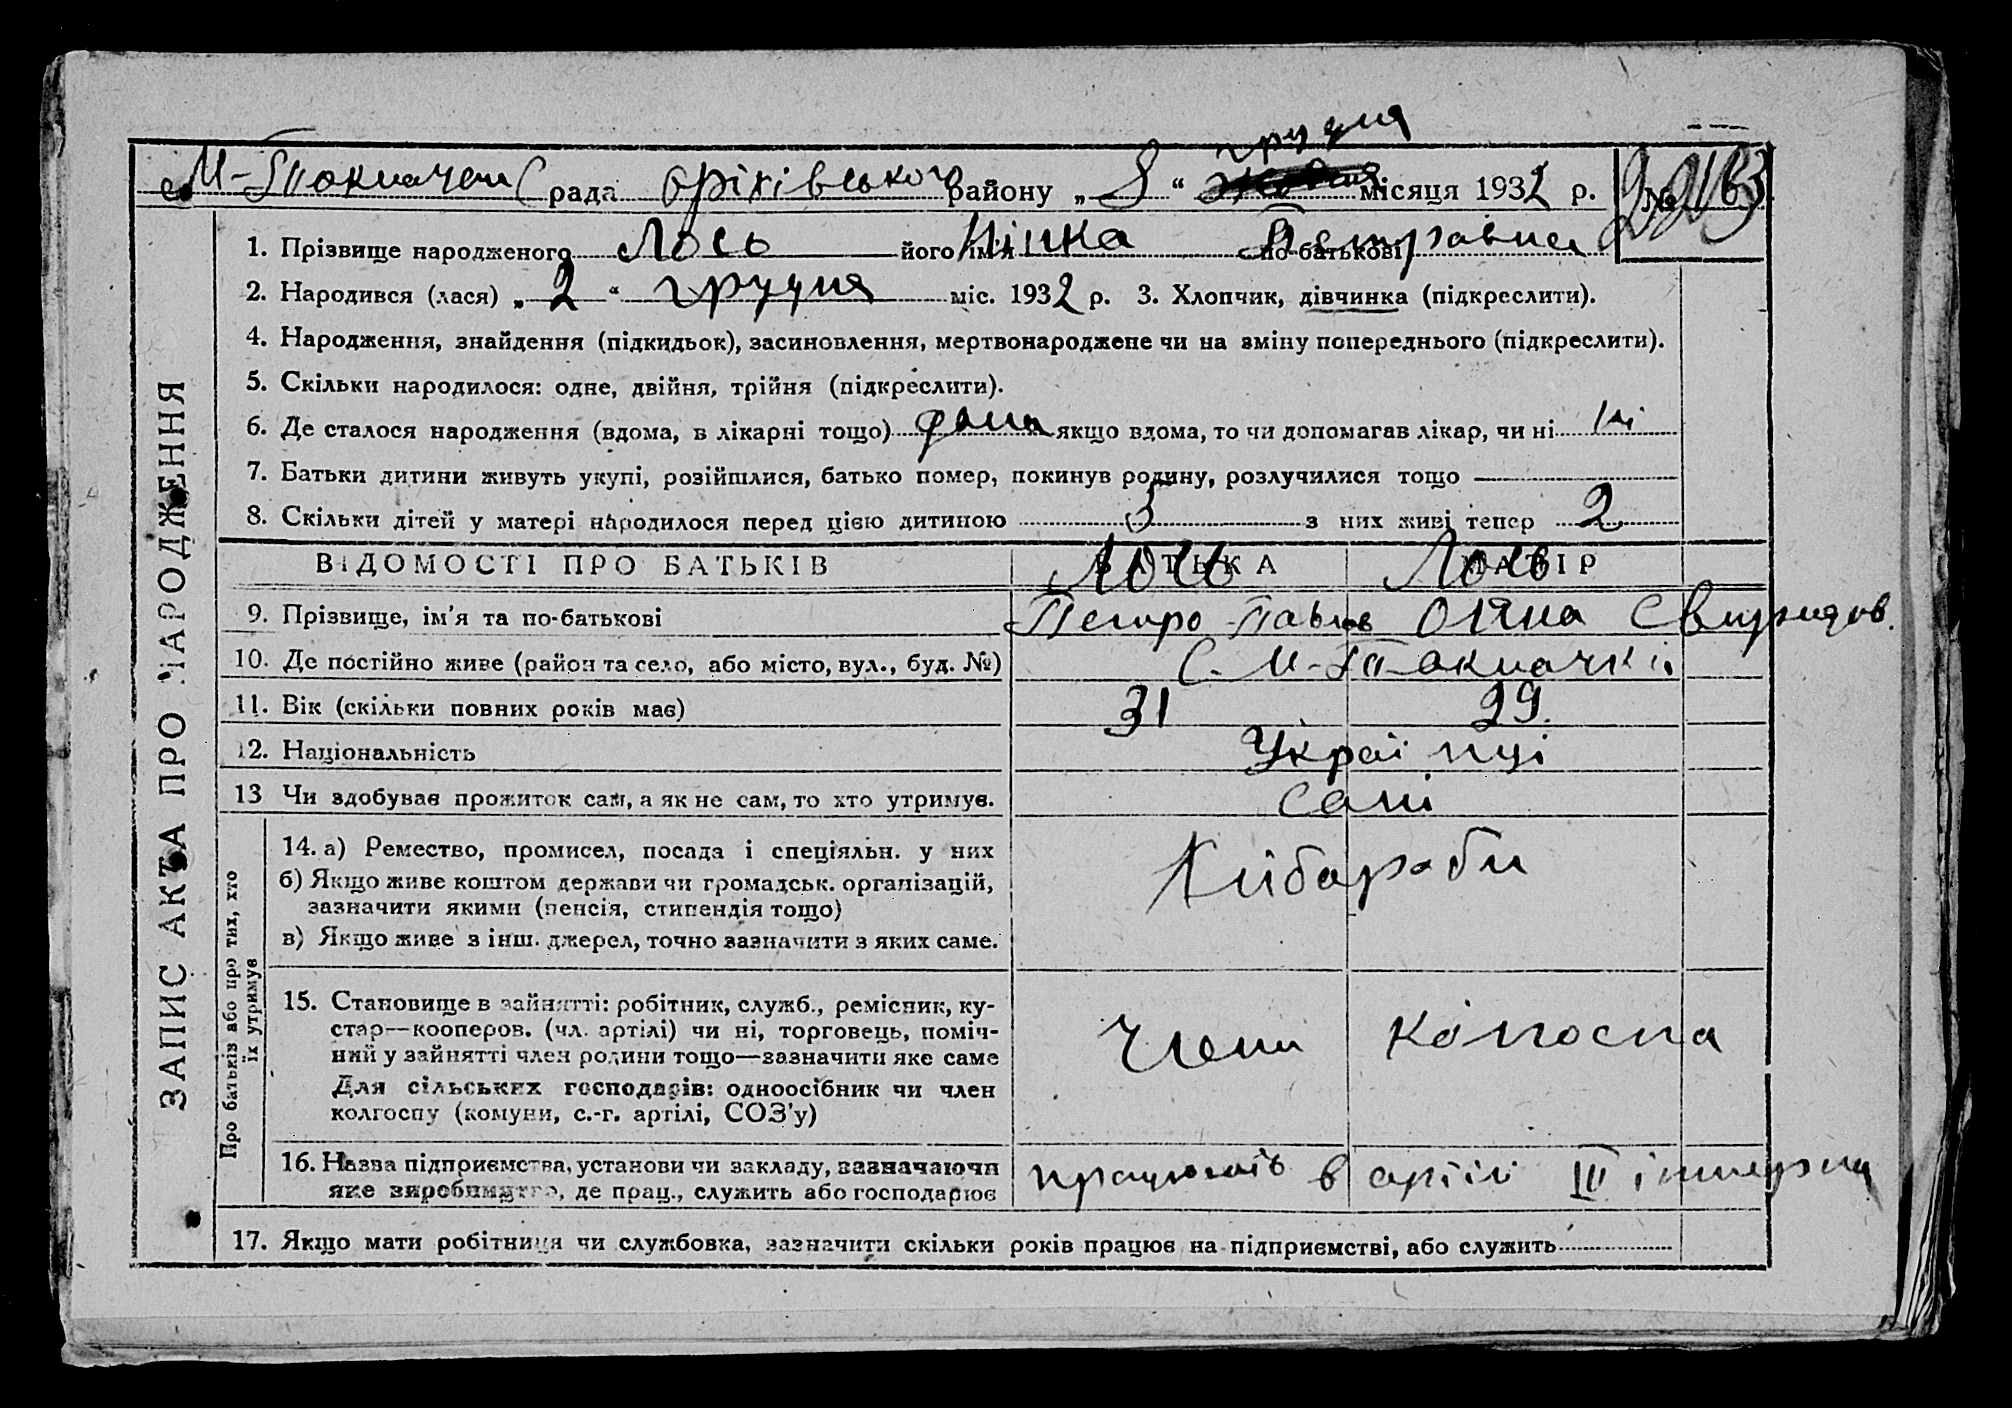 грудня
М-Токмачан С рада Оріхівського району „ 8 “ місяця 1932 р. №
1. Прізвище народженого Лось його ім'я Нінка по-батькові Петровна
2. Народився (лася) „ 2 “ грудня міс. 1932 р. 3. Хлопчик, дівчинка (підкреслити).
4. Народження, знайдення (підкидьок), засиновлення, мертвонароджене чи на зміну попереднього (підкреслити).
5. Скільки народилося: одне, двійня, трійня (підкреслити).
6. Де сталося народження (вдома, в лікарні тощо) дома якщо вдома, то чи допомагав лікар, чи ні ні
7. Батьки дитини живуть укупі, розійшлися, батько помер, покинув родину, розлучилися тощо
8. Скільки дітей у матері народилося перед цією дитиною 5 з них живі тепер 2
ВІДОМОСТІ ПРО БАТЬКІВ БАТЬКА МАТІР
Лось Лось
9. Прізвище, ім'я та по-батькові Петро Павлов Оляна Свиридов.
10. Де постійно живе (район та село, або місто, вул., буд. №) С. М-Токмачкі
11. Вік (скільки повних років має) 31 29.
12. Національність Українці
13 Чи здобуває прожиток сам, а як не сам, то хто утримує. Самі
14. а) Ремество, промисел, посада і спеціяльн. у них
б) Якщо живе коштом держави чи громадськ. організацій,
зазначити якими (пенсія, стипендія тощо)
в) Якщо живе з інш. джерел, точно зазначити з яких саме.
Хлібороби
15. Становище в зайнятті: робітник, служб., ремісник, ку-
стар—кооперов. (чл. артілі) чи ні, торговець, поміч-
ний у зайнятті член родини тощо—зазначити яке саме
Для сільських господарів: одноосібник чи член
колгоспу (комуни, с.-г. артілі, СОЗ'у)
Члени колгоспа
16. Назва підприємства, установи чи закладу, зазначаючи
яке виробництво, де прац., служить або господарює
працюють в артілі III інтернац
17. Якщо мати робітниця чи службовка, зазначити скільки років працює на підприємстві, або служить
ЗАПИС АКТА ПРО НАРОДЖЕННЯ
Про батьків або про тих, хто
їх утримує